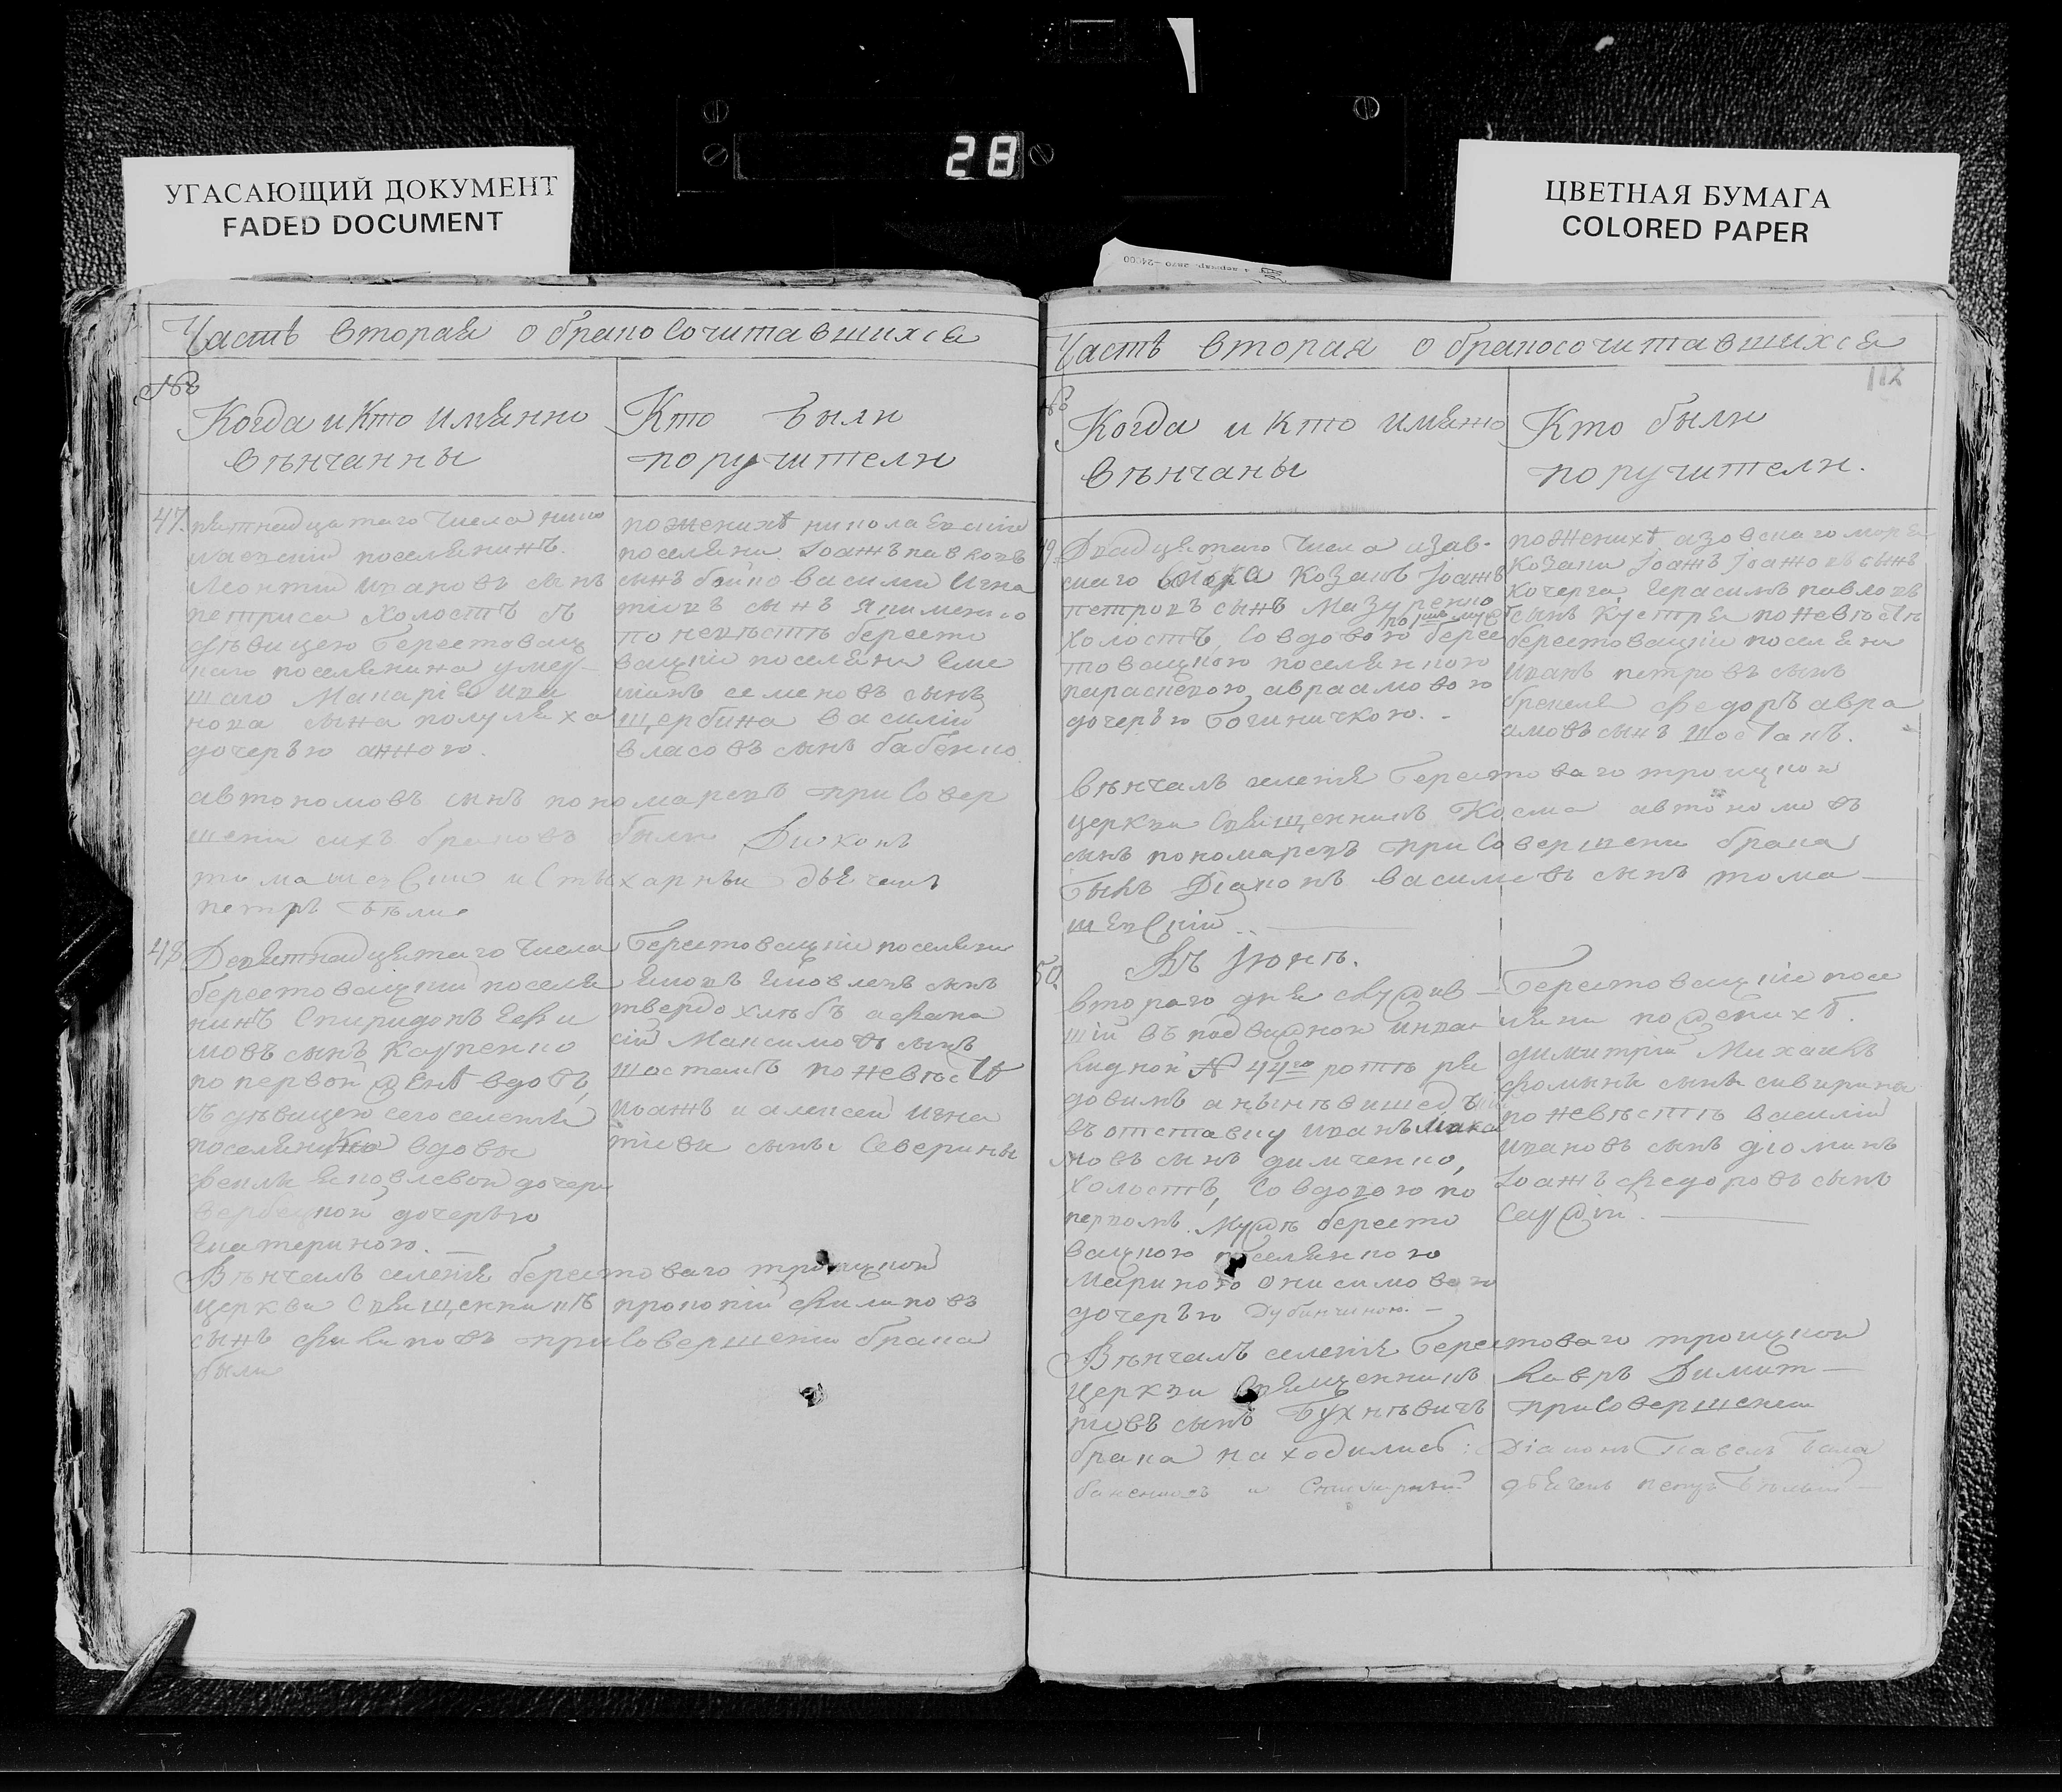 28
УГАСАЮЩИЙ ДОКУМЕНТ
FADED DOCUMENT
ЦВЕТНАЯ БУМАГА
COLORED PAPER
Часть вторая о бракосочитавшихся
№
Когда и кто имянно
венчанны
Кто были
поручители
47.
пятнадцатаго числа нико
лаевский поселянинъ
Леонтий Ивановъ сынъ
петриса холостъ съ
девицею берестовац
каго поселянина умер
шаго Макария Ива
нова сына полуляха
дочерью анною.
по женихе николаевские
поселяне Іоаннъ павловъ
сынъ бойко василий Игна
тиевъ сынъ якименко
по невесте бересто
вацкие поселяне Еме
лианъ семеновъ сынъ
щербина василий
власовъ сынъ бабенко
автономовъ сынъ пономаревъ при совер
шении сихъ браковъ были Диконъ
томашевский и стихарный дьячекъ
петръ белий
48
Девятнадцатаго числа
берестовацкий поселя
нинъ Спиридонъ Ефи
мовъ сынъ Карпенко
по первой жене вдовъ,
съ девицею сего селения
поселянки вдовы
феклы яковлевой дочери
вербецкой дочерью
Екатериною.
берестовацкие поселяне
яковъ яковлевъ сынъ
твердохлебъ афана
сий Максимовъ сынъ
шостакъ по невесте
Иоаннъ и алексей Игна
тиевы сыны Северины
Венчалъ селения берестоваго троицкой
церкви священникъ прокопий филиповъ
сынъ филиповъ при совершении брака
были
Часть вторая о бракосочитавшихся
112
№
Когда и кто имянно
венчаны
Кто были
поручители.
49.
Двадцатаго числа азов-
скаго войска козакъ Іоаннъ
петровъ сынъ Мазуренко
холостъ, со вдовою берес
товацкою поселянкою
параскевою авраамовою
дочерью богиничкою.
по женихе азовскаго моря
козаки Іоаннъ Іоанновъ сынъ
кочерга Герасимъ павловъ
сынъ по невесте
берестовацкие поселяне
Иванъ петровъ сынъ
федоръ авра
амовъ сынъ шостакъ.
венчалъ селения берестоваго троицкой
церкви священникъ Косма автономовъ
сынъ пономаревъ при совершении брака
былъ Діаконъ василиевъ сынъ тома-
шевский
Въ Іюне.
50.
втораго дня служив-
ший въ подвижной инва-
лидной № 44го роте ря
довимъ а ныне вишедъший
въ отставку Иванъ
мовъ сынъ димченко,
холостъ, со вдовою по
первомъ муже бересто
вацкою поселянкою
Мариною онисимовою
дочерью Дубинчиною.
берестовацкие посе
ляне по женихе.
димитрий Михаилъ
фоминъ сынъ сивирина
по невесте василий
Ивановъ сынъ дюминъ
Іоаннъ федоровъ сынъ
Венчалъ селения берестоваго троицкой
церкви священникъ Лавръ Димит-
риевъ сынъ Бухневичъ при совершении
брака находились: Діаконъ павелъ
и стихарный дьячекъ петръ белый